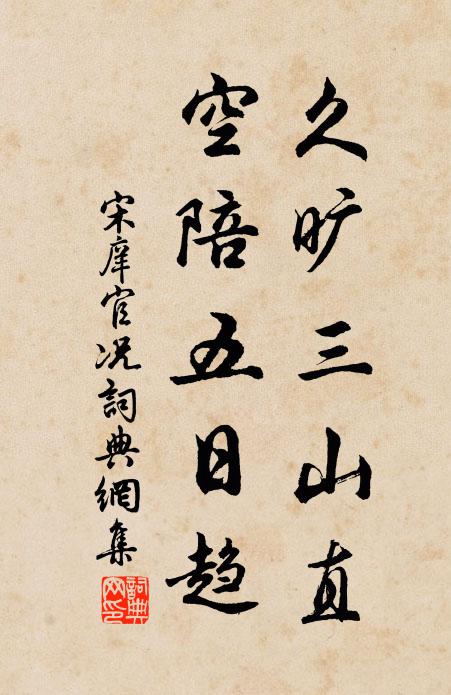 久旷三山直
空陪五日趋
宋庠官况詞典網集
詞典網印